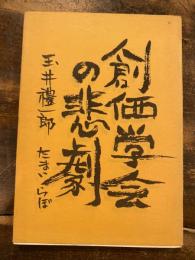 創価学会
の悲劇
玉井禮一郎
たまいらぼ